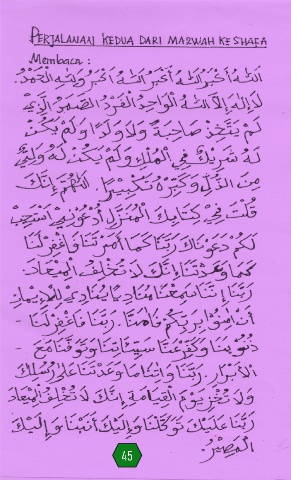 PERJALANAN KEDUA DARI MARWAH KE SHAFA
Membaca :
اَللّٰهُ اَكْبَرُ اَللّٰهُ اَكْبَرُ اَللّٰهُ اَكْبَرُ وَلِلّٰهِ الْحَمْدُ.
لَا اِلٰهَ اِلَّا اللّٰهُ الْوَاحِدُ الْفَرْدُ الصَّمَدُ الَّذِيْ
لَمْ يَتَّخِذْ صَاحِبَةً وَلَا وَلَدًا وَلَمْ يَكُنْ
لَهُ شَرِيْكٌ فِي الْمُلْكِ وَلَمْ يَكُنْ لَهُ وَلِيٌّ
مِنَ الذُّلِّ وَكَبِّرْهُ تَكْبِيْرًا. اَللّٰهُمَّ اِنَّكَ
قُلْتَ فِيْ كِتَابِكَ الْمُنَزَّلِ اُدْعُوْنِيْ اَسْتَجِبْ
لَكُمْ دَعَوْنَاكَ رَبَّنَا كَمَا اَمَرْتَنَا فَاغْفِرْ لَنَا
كَمَا وَعَدْتَنَا اِنَّكَ لَا تُخْلِفُ الْمِيْعَادَ.
رَبَّنَا اِنَّنَا سَمِعْنَا مُنَادِيًا يُنَادِيْ لِلْاِيْمَانِ
اَنْ اٰمِنُوْا بِرَبِّكُمْ فَاٰمَنَّا. رَبَّنَا فَاغْفِرْ لَنَا -
ذُنُوْبَنَا وَكَفِّرْ عَنَّا سَيِّئَاتِنَا وَتَوَفَّنَا مَعَ -
الْاَبْرَارِ. رَبَّنَا وَاٰتِنَا مَا وَعَدْتَنَا عَلٰى رُسُلِكَ
وَلَا تُخْزِنَا يَوْمَ الْقِيَامَةِ اِنَّكَ لَا تُخْلِفُ الْمِيْعَادَ
رَبَّنَا عَلَيْكَ تَوَكَّلْنَا وَاِلَيْكَ اَنَبْنَا وَاِلَيْكَ
الْمَصِيْرُ.
45